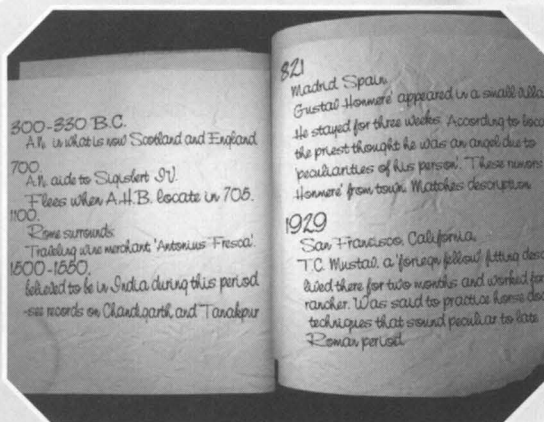 300-330 B.C.
A.N. in what is now Scotland and England
700.
A.N. aide to Sigisbert IV.
Flees when A.H.B. locate in 705.
1100.
Rome surrounds
Traveling wine merchant 'Antonius Fresca'.
1500-1550.
believed to be in India during this period
-see records on Chandigarth and Tanakpur
821
Madrid Spain
Gustal Honmere' appeared in a small
He stayed for three weeks. According to
the priest thought he was an angel due to
'peculiarities of his person'. These rumors
Honmere' from town. Matches description
1929
San Francisco, California.
T.C. Mustal, a 'foriegn fellow' fitting
lived there for two months and worked
rancher. Was said to practice horse
techniques that sound peculiar to late
Roman period.